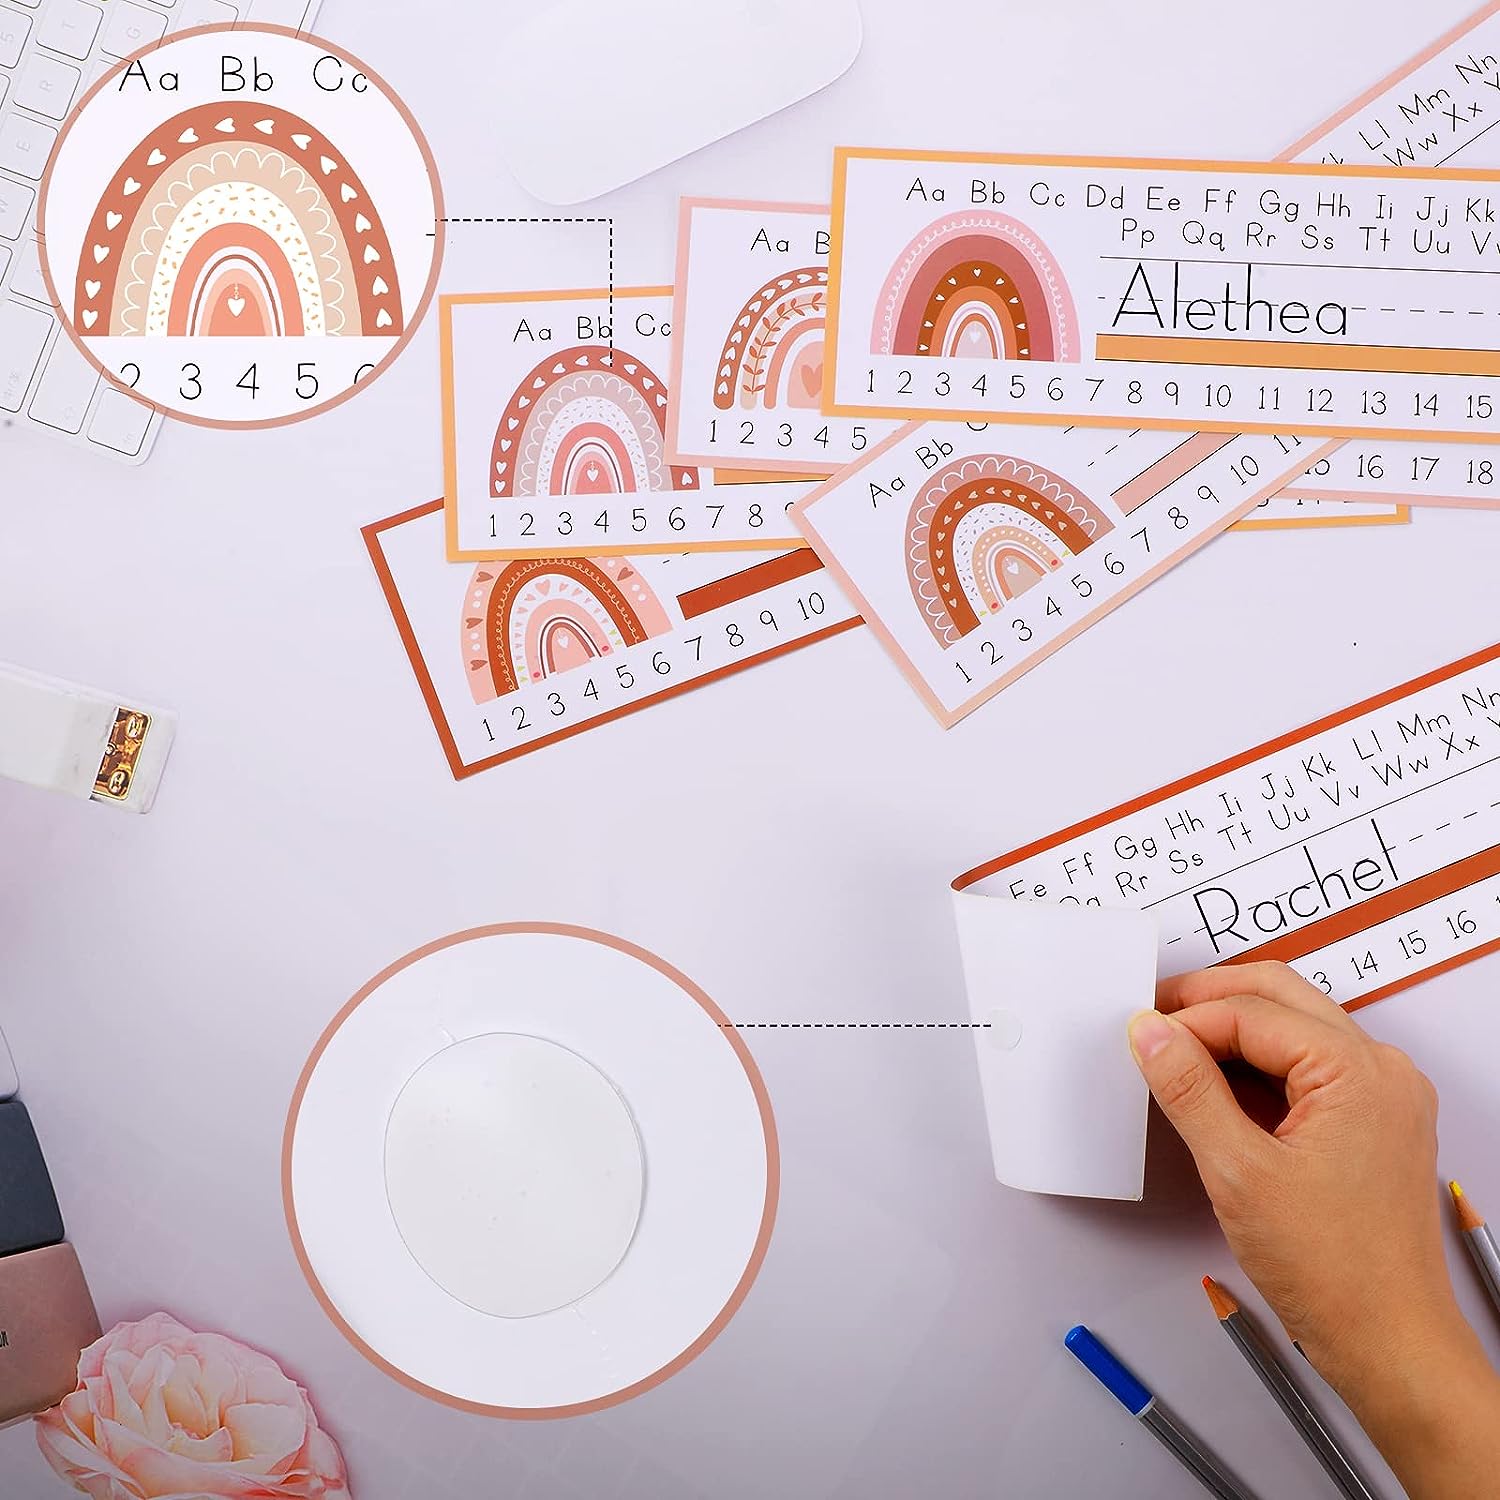 Aa Bb Cc
2 3 4 5 6
Aa Bb Cc Dd Ee Ff Gg Hh Ii Jj Kk
Pp Qq Rr Ss Tt Uu Vv
Alethea
1 2 3 4 5 6 7 8 9 10 11 12 13 14 15
Ll Mm Nn
Ww Xx
Aa B
1 2 3 4 5
Aa Bb Cc
1 2 3 4 5 6 7 8 9
Aa Bb C
1 2 3 4 5 6 7 8 9 10 11
15 16 17 18
1 2 3 4 5 6 7 8 9 10
Ee Ff Gg Hh Ii Jj Kk Ll Mm Nn
Qq Rr Ss Tt Uu Vv Ww Xx
Rachel
13 14 15 16
T
G
R
E
W